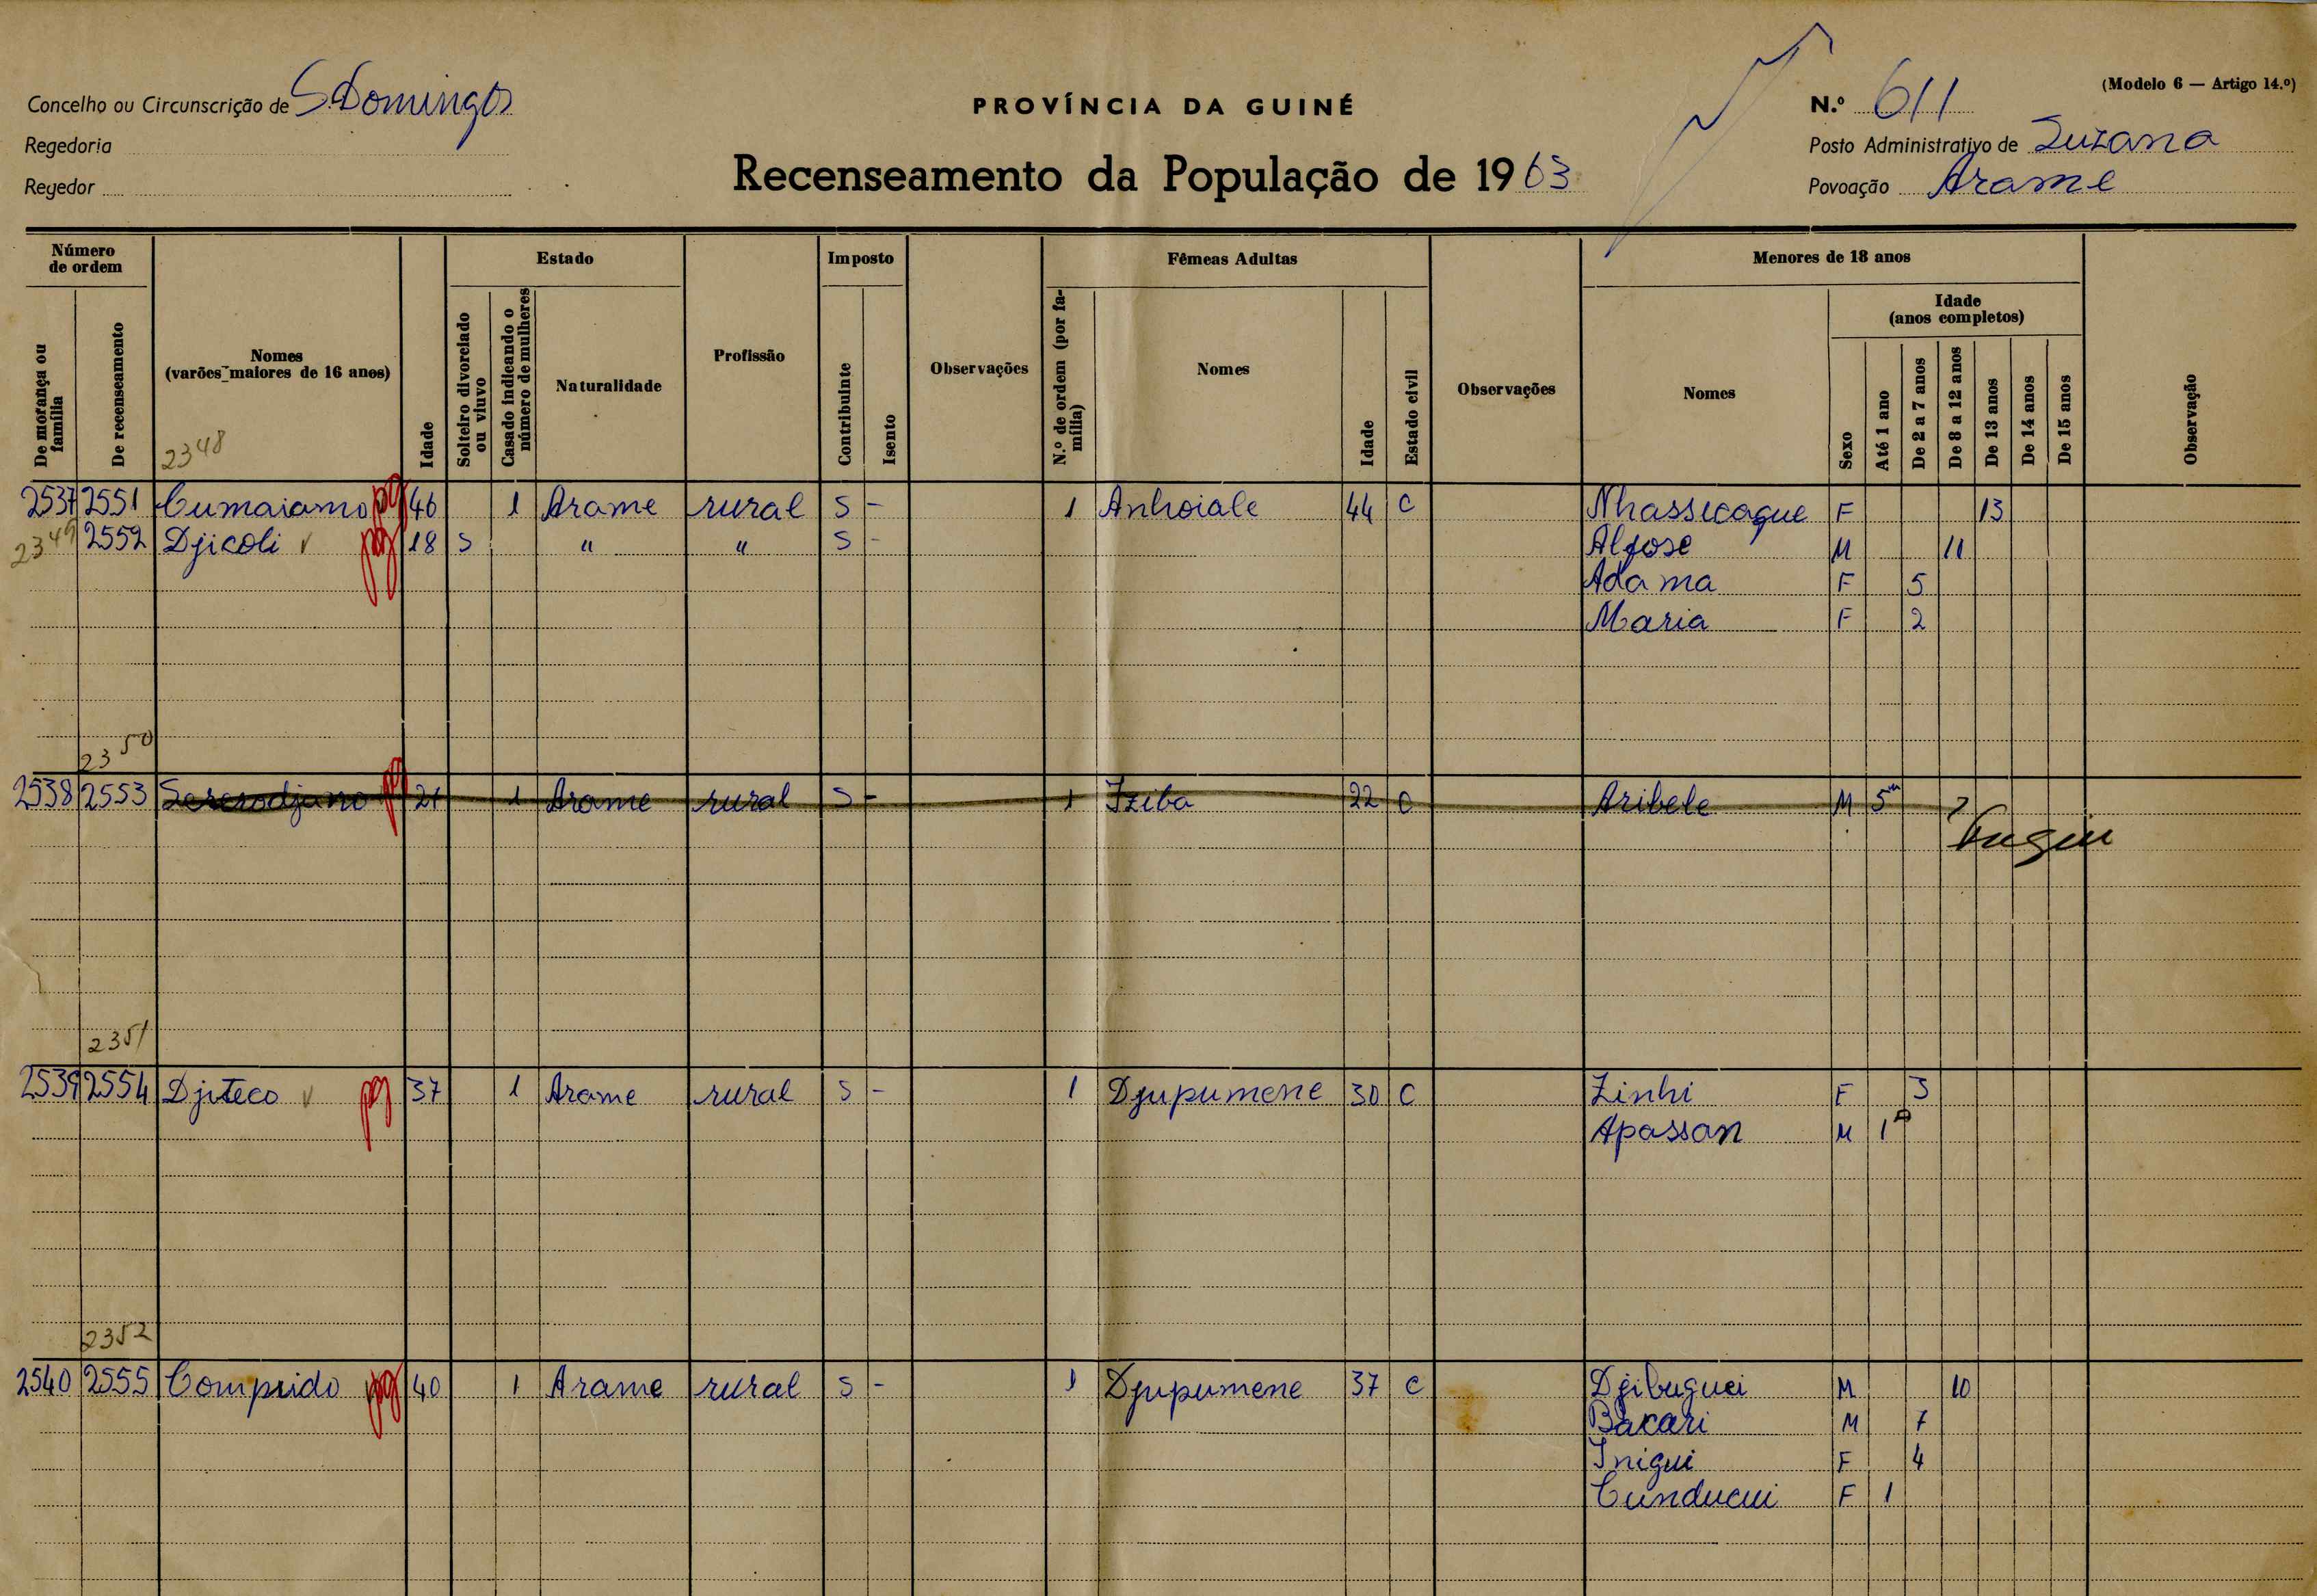 (Modelo 6 — Artigo 14.º)
Concelho ou Circunscrição de S. Domingos
PROVÍNCIA DA GUINÉ
N.º 611
Regedoria
Posto Administrativo de Suzana
Regedor
Recenseamento da População de 1963
Povoação Arame
Número de ordem
Estado
Imposto
Fêmeas Adultas
Menores de 18 anos
Idade (anos completos)
De morança ou família
De recenseamento
Nomes (varões maiores de 16 anos)
Idade
Solteiro divorciado ou viuvo
Casado indicando o número de mulheres
Naturalidade
Profissão
Contribuinte
Isento
Observações
N.º de ordem (por família)
Nomes
Idade
Estado civil
Observações
Nomes
Sexo
Até 1 ano
De 2 a 7 anos
De 8 a 12 anos
De 13 anos
De 14 anos
De 15 anos
Observação
2348
2537 2551 Cumaiamo pg 46 1 Arame rural S - 1 Anhoiale 44 C Nhassicaque F 13
2349 2552 Djicoli pg 18 S " " S - M 11
Adama F 5
Maria F 2
2350
2538 2553 pg 21 1 Arame rural S - 1 Iziba 22 C Aribele M 5m
2351
2539 2554 Djiteco pg 37 1 Arame rural S - 1 Djupumene 30 C Zinhi F 3
Apassan M 1
2352
2540 2555 Comprido pg 40 1 Arame rural S - 1 Djupumene 37 C Djibuguei M 10
Bacari M 7
Inigui F 4
Cunducui F 1